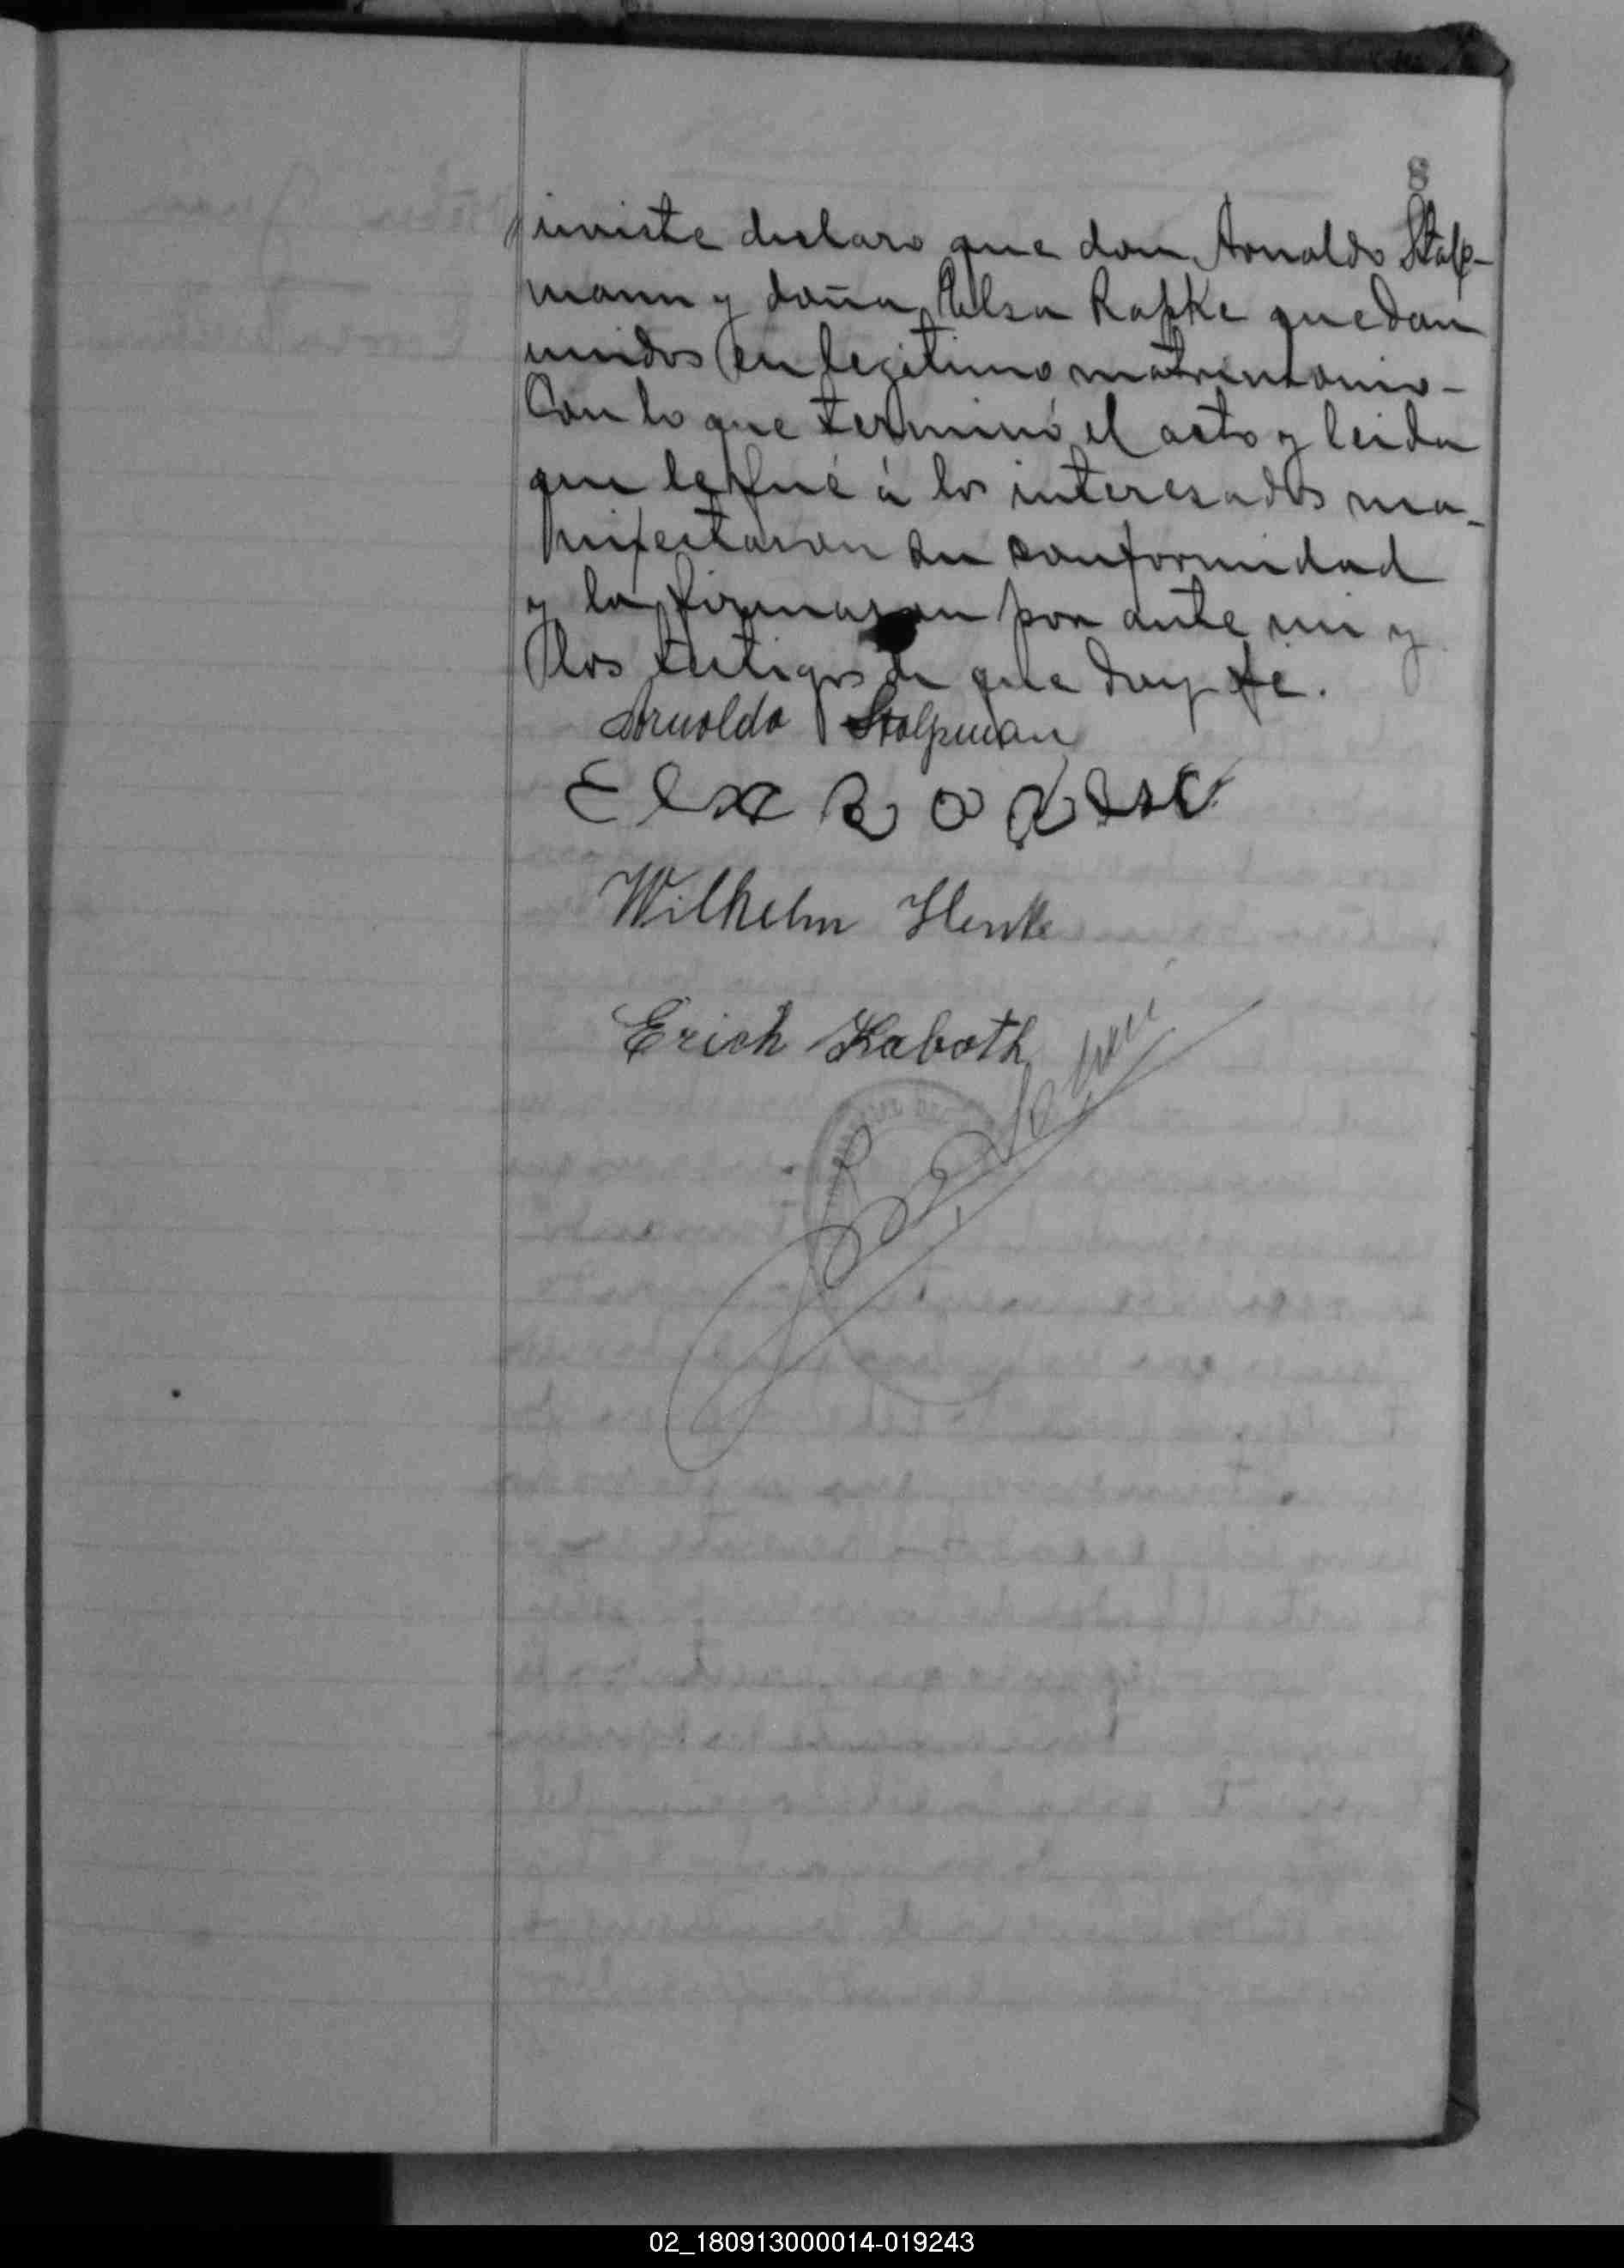 8
inviste declaro que don Arnaldo Stalp-
mann y doña Elsa Rapke quedan
unidos en legitimo matrimonio-
Con lo que terminó el acto y leida
que le fué á los interesados ma-
nifestaron su conformidad
y la firmaron por ante mi y
los testigos de que doy fé.
Arnoldo Stolpman
Elsa
Wilhelm Henke
Erich Kaboth
02_180913000014-019243